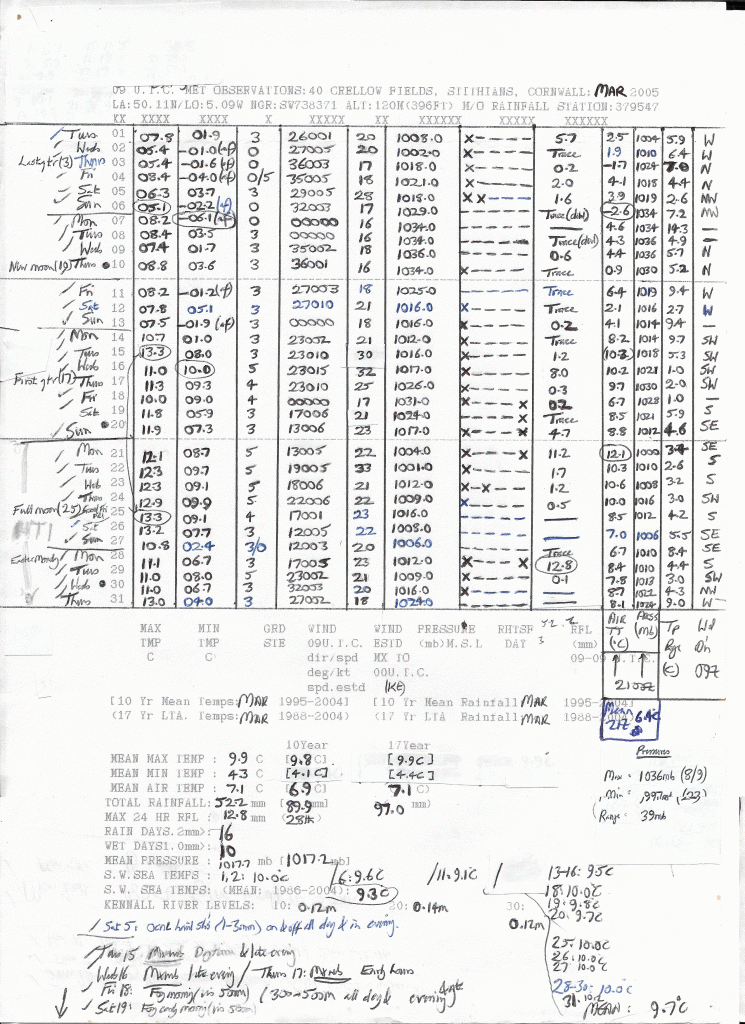 09 U.T.C. MET OBSERVATIONS:40 CRELLOW FIELDS, STITHIANS, CORNWALL: MAR 2005
LA:50.11N/LO:5.09W NGR:SW738371 ALT:120M(396FT) M/O RAINFALL STATION:379547
XX XXXX XXXX X XXXXX XX XXXXXX XXXXX XXXXX XXXXXX
Tues 01 07.8 01.9 3 26001 20 1008.0 X---- 5.7 2.5 1004 5.9 W
Weds 02 06.4 -01.0(af) 0 27005 20 1002.0 X---- Trace 1.9 1010 6.4 W
Last qtr(3) Thurs 03 05.4 -01.6(af) 0 36003 17 1018.0 X---- 0.2 -1.7 1024 7.0 N
Fri 04 03.4 -04.0(af) 0/5 35005 18 1021.0 X---- 2.0 4.1 1018 4.4 N
Sat 05 06.3 03.7 3 29005 28 1018.0 XX--- 1.6 3.9 1019 2.6 NW
Sun 06 05.1 -02.2(af) 0 32003 17 1029.0 ----- Trace(dw) -2.6 1034 7.2 NW
Mon 07 08.2 -06.1(af) 0 00000 16 1034.0 ----- — 4.6 1034 14.3 —
Tues 08 08.4 03.5 3 00000 16 1034.0 ----- Trace(dw) 4.3 1036 4.9 —
Weds 09 07.4 01.7 3 35002 18 1036.0 ----- 0.6 4.4 1036 5.7 N
New moon(10) Thurs 10 08.8 03.6 3 36001 16 1034.0 X---- Trace 0.9 1030 5.2 N
Fri 11 08.2 -01.2(af) 3 27003 18 1025.0 ----- Trace 6.4 1019 9.4 W
Sat 12 07.8 05.1 3 27010 21 1016.0 X---- Trace 2.1 1016 2.7 W
Sun 13 07.5 -01.9(af) 3 00000 18 1016.0 X---- 0.2 4.1 1014 9.4 —
Mon 14 10.7 01.0 3 23002 21 1012.0 X---- Trace 8.2 1014 9.7 SW
Tues 15 13.3 08.0 3 23010 30 1016.0 X---- 1.2 10.3 1018 5.3 SW
Weds 16 11.0 10.0 5 23015 32 1017.0 X---- 8.0 10.2 1021 1.0 SW
First qtr(17) Thurs 17 11.3 09.3 4 23010 25 1026.0 X---- 0.3 9.7 1030 2.0 SW
Fri 18 10.0 09.0 4 00000 17 1031.0 X---- 0.2 6.7 1028 1.0 —
Sat 19 11.8 05.9 3 17006 21 1024.0 X---X Trace 8.5 1021 5.9 S
Sun 20 11.9 07.3 3 13006 23 1017.0 X---X 4.7 8.8 1012 4.6 SE
Mon 21 12.1 08.7 5 13005 22 1004.0 X---X 11.2 12.1 1000 3.4 SE
Tues 22 12.3 09.7 5 19005 33 1001.0 X---- 1.7 10.3 1010 2.6 S
Wed 23 12.3 09.1 5 18006 21 1012.0 X-X-- 1.2 10.6 1008 3.2 S
Thurs 24 12.9 09.9 5 22006 22 1009.0 X---- 0.5 10.0 1016 3.0 SW
Full moon(25) Good Fri 25 13.3 09.1 4 17001 23 1016.0 ----- — 8.5 1012 4.2 S
Sat 26 13.2 07.7 3 12005 22 1008.0 ----- — 7.0 1006 5.5 SE
Sun 27 10.8 02.4 3/0 12003 20 1006.0 ----- 6.7 1010 8.4 SE
Easter Monday Mon 28 11.1 06.7 3 17005 23 1012.0 X---X Trace 8.4 1010 4.4 S
Tues 29 11.0 08.0 5 23002 21 1009.0 X---- 12.8 7.8 1013 3.0 SW
Weds 30 11.0 06.7 3 32003 20 1016.0 X---- 0.1 8.7 1022 4.3 NW
Thurs 31 13.0 04.0 3 27002 18 1024.0 ----- — 8.1 1024 9.0 W
MAX MIN GRD WIND WIND PRESSURE RHTSF RFL AIR PRESS Tp Wd
TMP TMP STE 09U.T.C. ESTD (mb)M.S.L DAY (mm) TT (Mb) Rge Dn
C C dir/spd MX TO 09-09 (°C) (C) 09Z
deg/kt 00U.T.C.
spd.estd (KE) 2100Z
[10 Yr Mean Temps: MAR 1995-2004] [10 Yr Mean Rainfall MAR 1995-2004]
(17 Yr LTA. Temps: MAR 1988-2004) (17 Yr LTA Rainfall MAR 1988-2004)
Mean 21Z 6.4°C
10Year 17Year
MEAN MAX TEMP : 9.9 C [9.8 C] [9.9 C]
MEAN MIN TEMP : 4.3 C [4.1 C] [4.4 C]
MEAN AIR TEMP : 7.1 C 6.9 C] 7.1 C)
TOTAL RAINFALL: 52.2 mm [89.9 97.0 mm)
MAX 24 HR RFL : 12.8 mm (28th
RAIN DAYS.2mm>: 16
WET DAYS1.0mm>: 10
MEAN PRESSURE : 1017.7 mb [1017.2 mb]
Pressures
Max : 1036mb (8/9)
Min : 997mb (22)
Range : 39mb
S.W.SEA TEMPS : 1,2: 10.0°C /6: 9.6°C /11: 9.1°C
S.W. SEA TEMPS: (MEAN: 1986-2004): 9.3°C
KENNALL RIVER LEVELS: 10: 0.12m 20: 0.14m 30: 0.12m
13-16: 9.5°C
18: 10.0°C
19: 9.8°C
20: 9.7°C
25: 10.0°C
26: 10.0°C
27: 10.0°C
28-30: 10.0°C
31: 10.0°C
MEAN: 9.7°C
Sat 5: hail on & off all day & in evening.
Tues 15 Daytime & late evening
Weds 16 late evening / Thurs 17: Early hours
Fri 18: Fog morning (vis 500m) (300-500m all day & evening
Sat 19: Fog early morning (vis 500m)